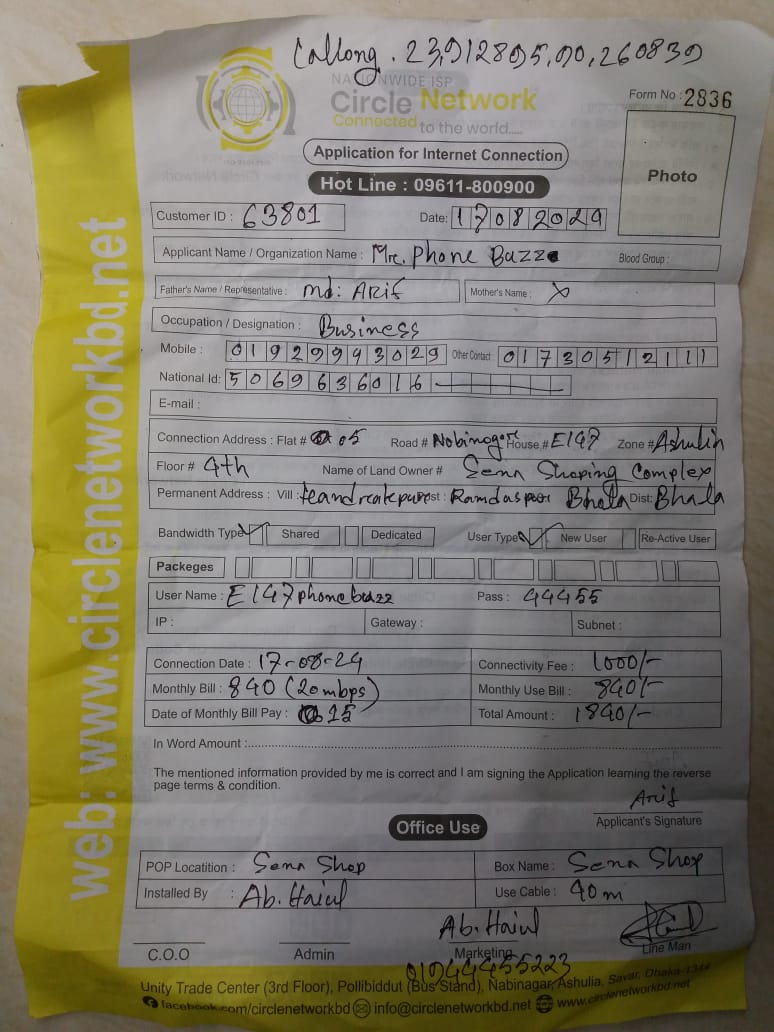 Lallong. 23,912895,90,260839
NATIONWIDE ISP
Circle Network
Connected to the world.....
Form No : 2836
Photo
Application for Internet Connection
Hot Line : 09611-800900
Customer ID : 63801 Date: 17082024
Applicant Name / Organization Name : Mrc. Phone Buzz Blood Group :
Father's Name / Representative : md: Arif Mother's Name : X
Occupation / Designation : Business
Mobile : 01929943029 Other Contact : 01730512111
National Id: 5069636016
E-mail :
Connection Address : Flat # 05 Road # Nobinogor House # E147 Zone # Ashulia
Floor # 4th Name of Land Owner # Sena Shoping Complex
Permanent Address : Vill : st : Ramdaspur Bhola Dist: Bhala
Bandwidth Type Shared Dedicated User Type New User Re-Active User
Packeges
User Name : E147phonebuzz Pass : 44455
IP : Gateway : Subnet :
Connection Date : 17-08-24 Connectivity Fee : 1000/-
Monthly Bill : 840 (20mbps) Monthly Use Bill : 840/-
Date of Monthly Bill Pay : 15 Total Amount : 1840/-
In Word Amount :
The mentioned information provided by me is correct and I am signing the Application learning the reverse
page terms & condition.
Arif
Applicant's Signature
Office Use
POP Locatition : Sena Shop Box Name : Sena Shop
Installed By : Ab. Haiul Use Cable : 40m
Ab. Haiul
C.O.O Admin Marketing Line Man
01944455223
Unity Trade Center (3rd Floor), Pollibiddut (Bus Stand), Nabinagar, Ashulia, Savar, Dhaka-1344
facebook.com/circlenetworkbd info@circlenetworkbd.net www.circlenetworkbd.net
web: www.circlenetworkbd.net